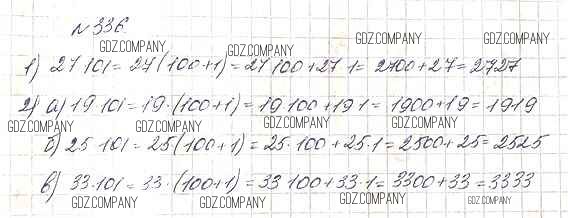 №336
GDZ.COMPANY GDZ.COMPANY GDZ.COMPANY GDZ.COMPANY
1) 27·101 = 27·(100+1) = 27·100+27·1 = 2700+27 = 2727
2) а) 19·101 = 19·(100+1) = 19·100+19·1 = 1900+19 = 1919
GDZ.COMPANY GDZ.COMPANY GDZ.COMPANY GDZ.COMPANY
б) 25·101 = 25(100+1) = 25·100+25·1 = 2500+25 = 2525
в) 33·101 = 33·(100+1) = 33·100+33·1 = 3300+33 = 3333
GDZ.COMPANY GDZ.COMPANY GDZ.COMPANY GDZ.COMPANY